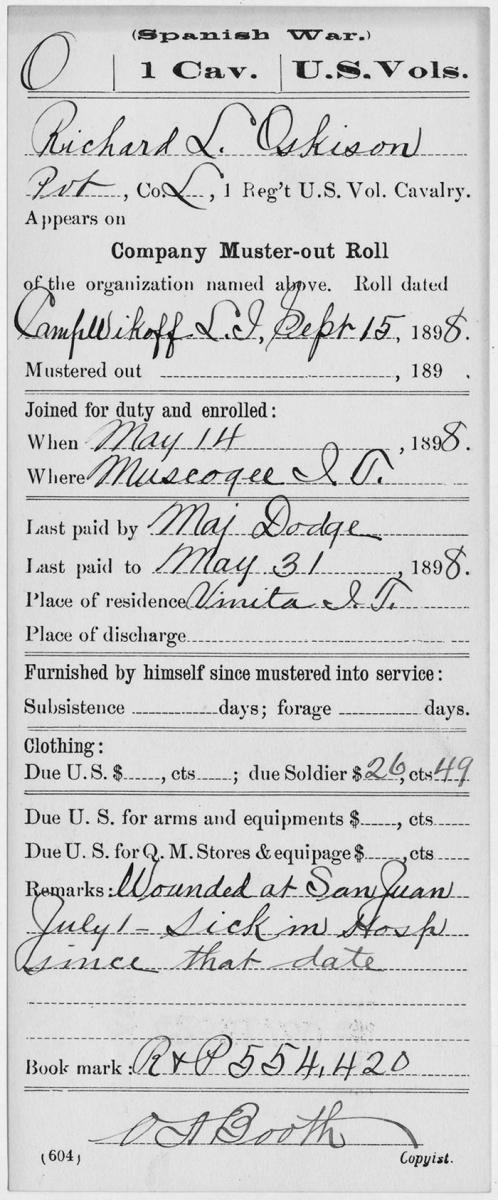 (Spanish War.)
O | 1 Cav. | U.S.Vols.
Richard L. Oskison
Pvt, Co. L, 1 Reg't U.S. Vol. Cavalry.
Appears on
Company Muster-out Roll
of the organization named above. Roll dated
Camp Wikoff L.I., Sept 15, 1898.
Mustered out , 189 .
Joined for duty and enrolled:
When May 14, 1898.
Where Muscogee I.T.
Last paid by Maj Dodge
Last paid to May 31, 1898.
Place of residence Vinita I.T.
Place of discharge
Furnished by himself since mustered into service:
Subsistence days; forage days.
Clothing:
Due U.S. $ , cts ; due Soldier $26, cts 49
Due U. S. for arms and equipments $ , cts
Due U. S. for Q. M. Stores & equipage $ , cts
Remarks: Wounded at San Juan
July 1 - Sick in Hosp
since that date
Book mark: R & P 554,420
Booth
(604) Copyist.